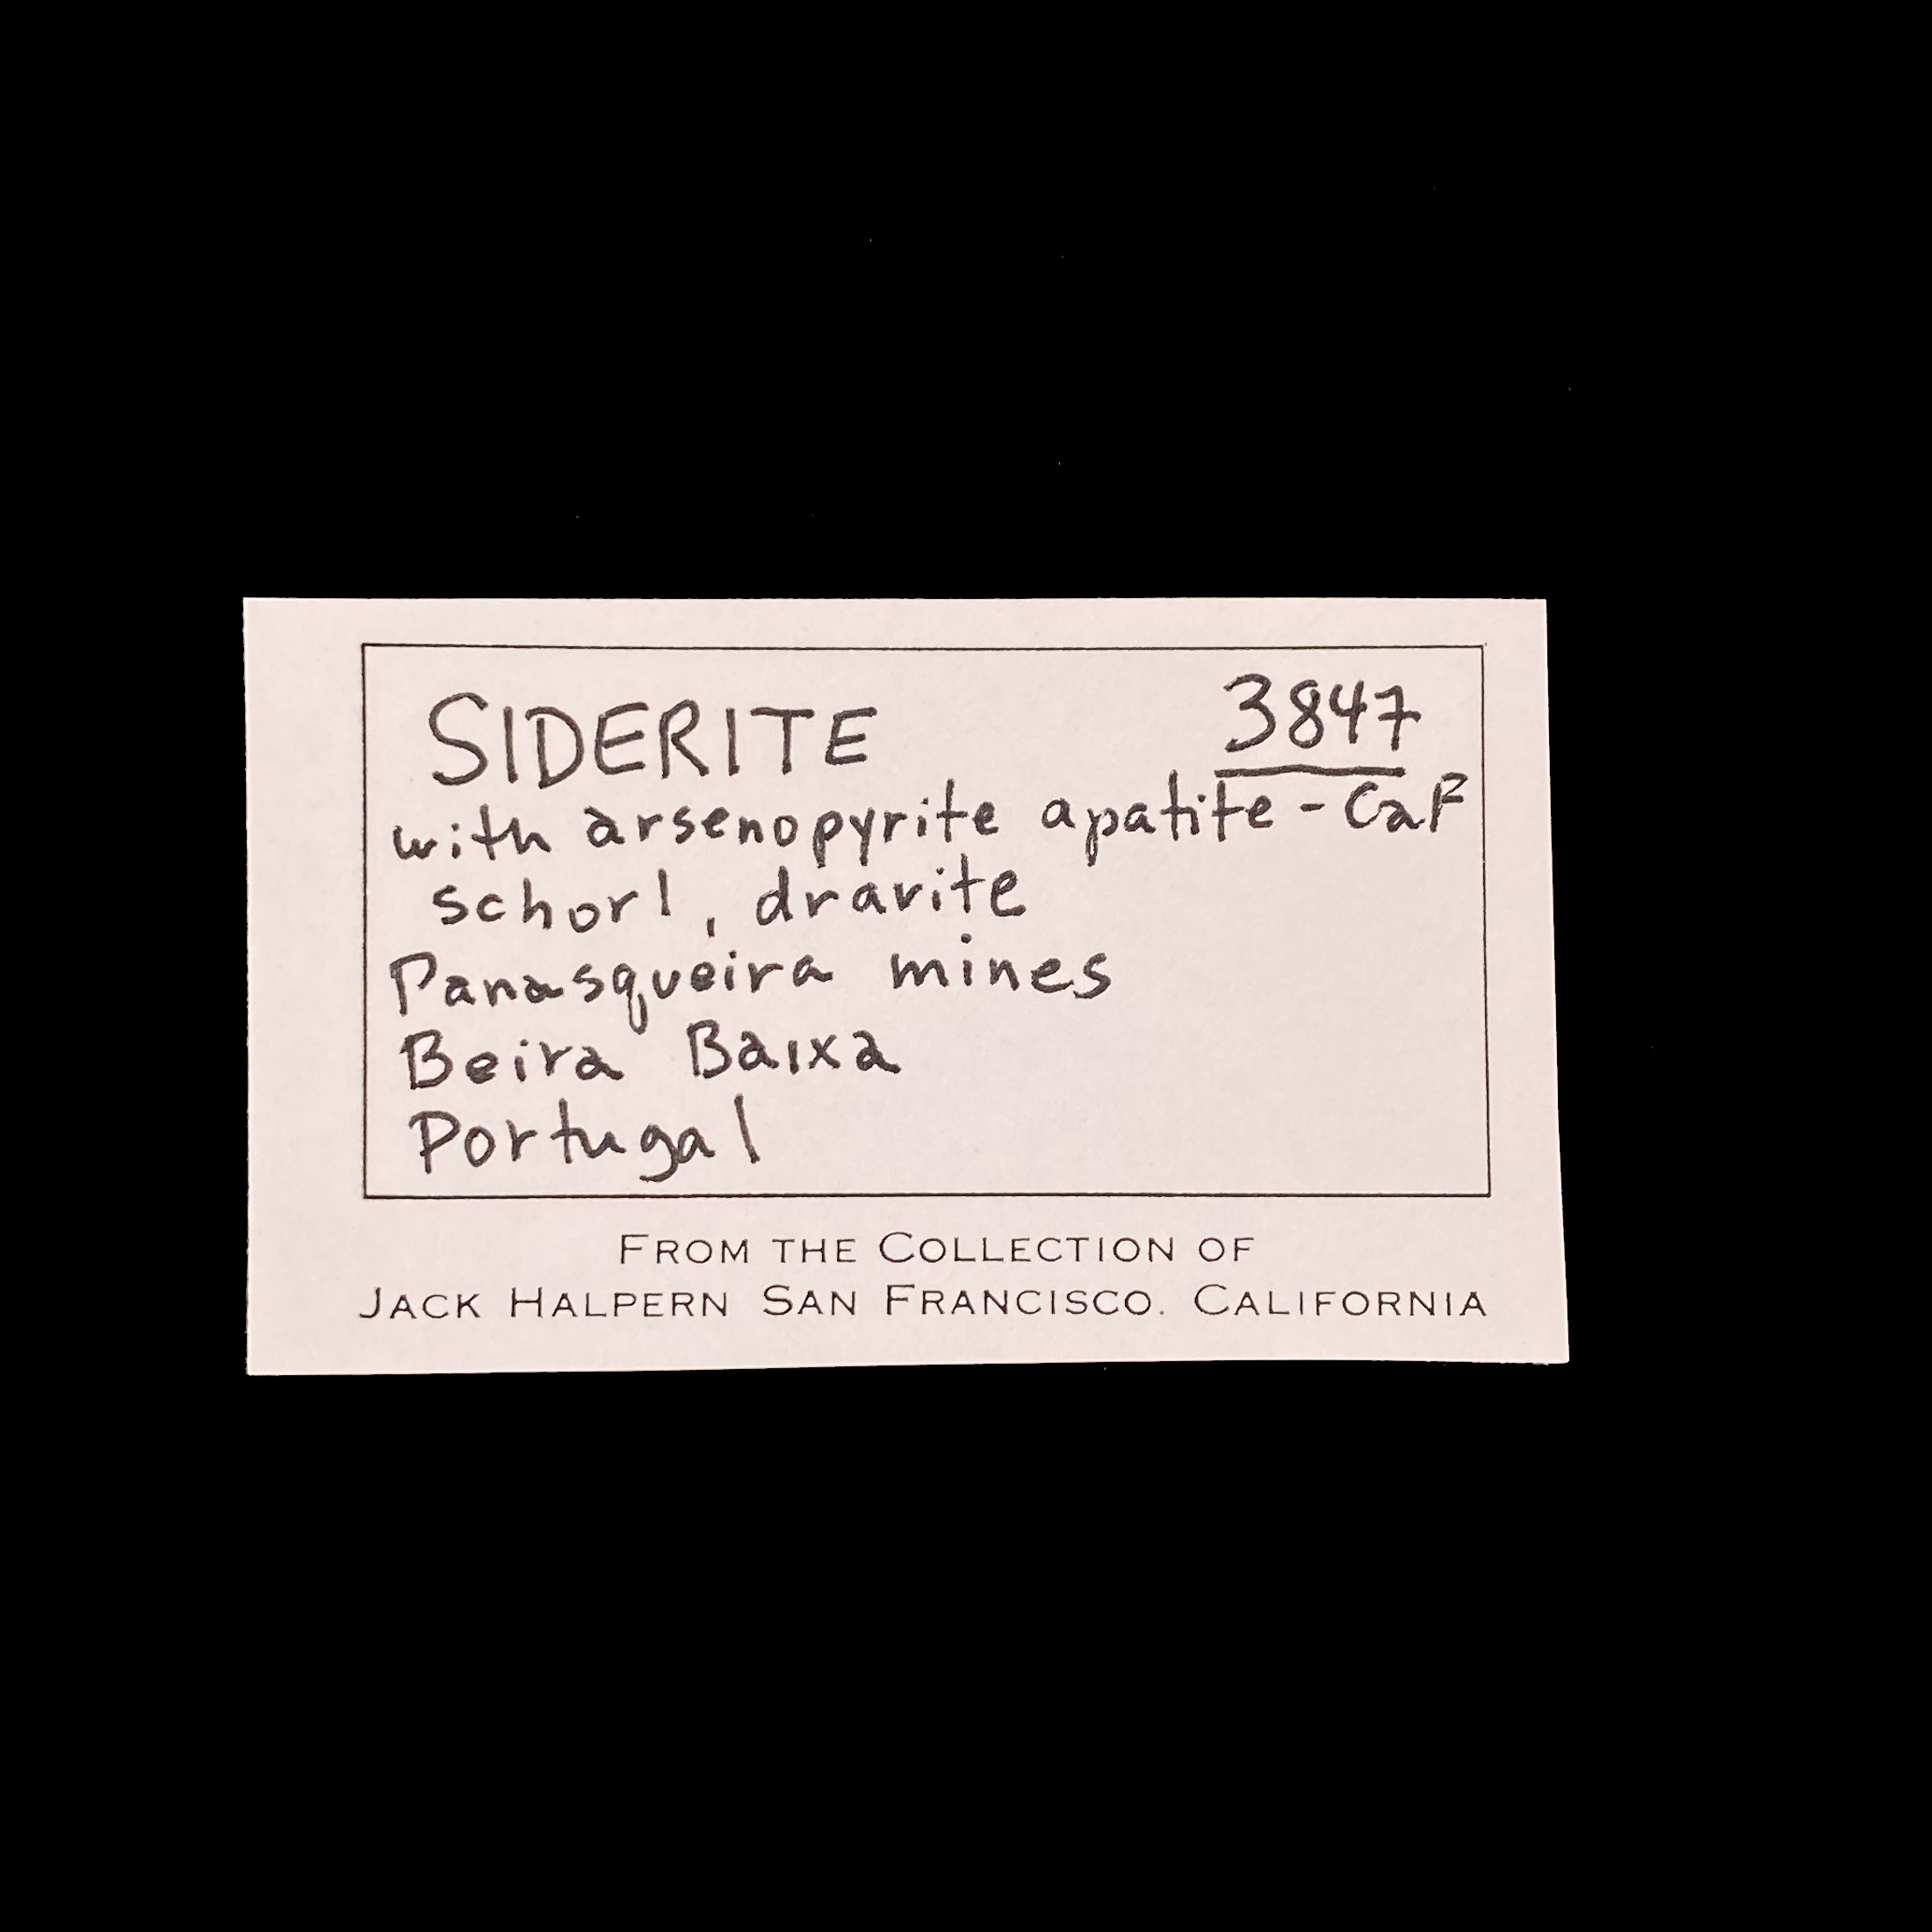 SIDERITE 3847
with arsenopyrite apatite-CaF
schorl, dravite
Panasqueira mines
Beira Baixa
Portugal
FROM THE COLLECTION OF
JACK HALPERN SAN FRANCISCO. CALIFORNIA